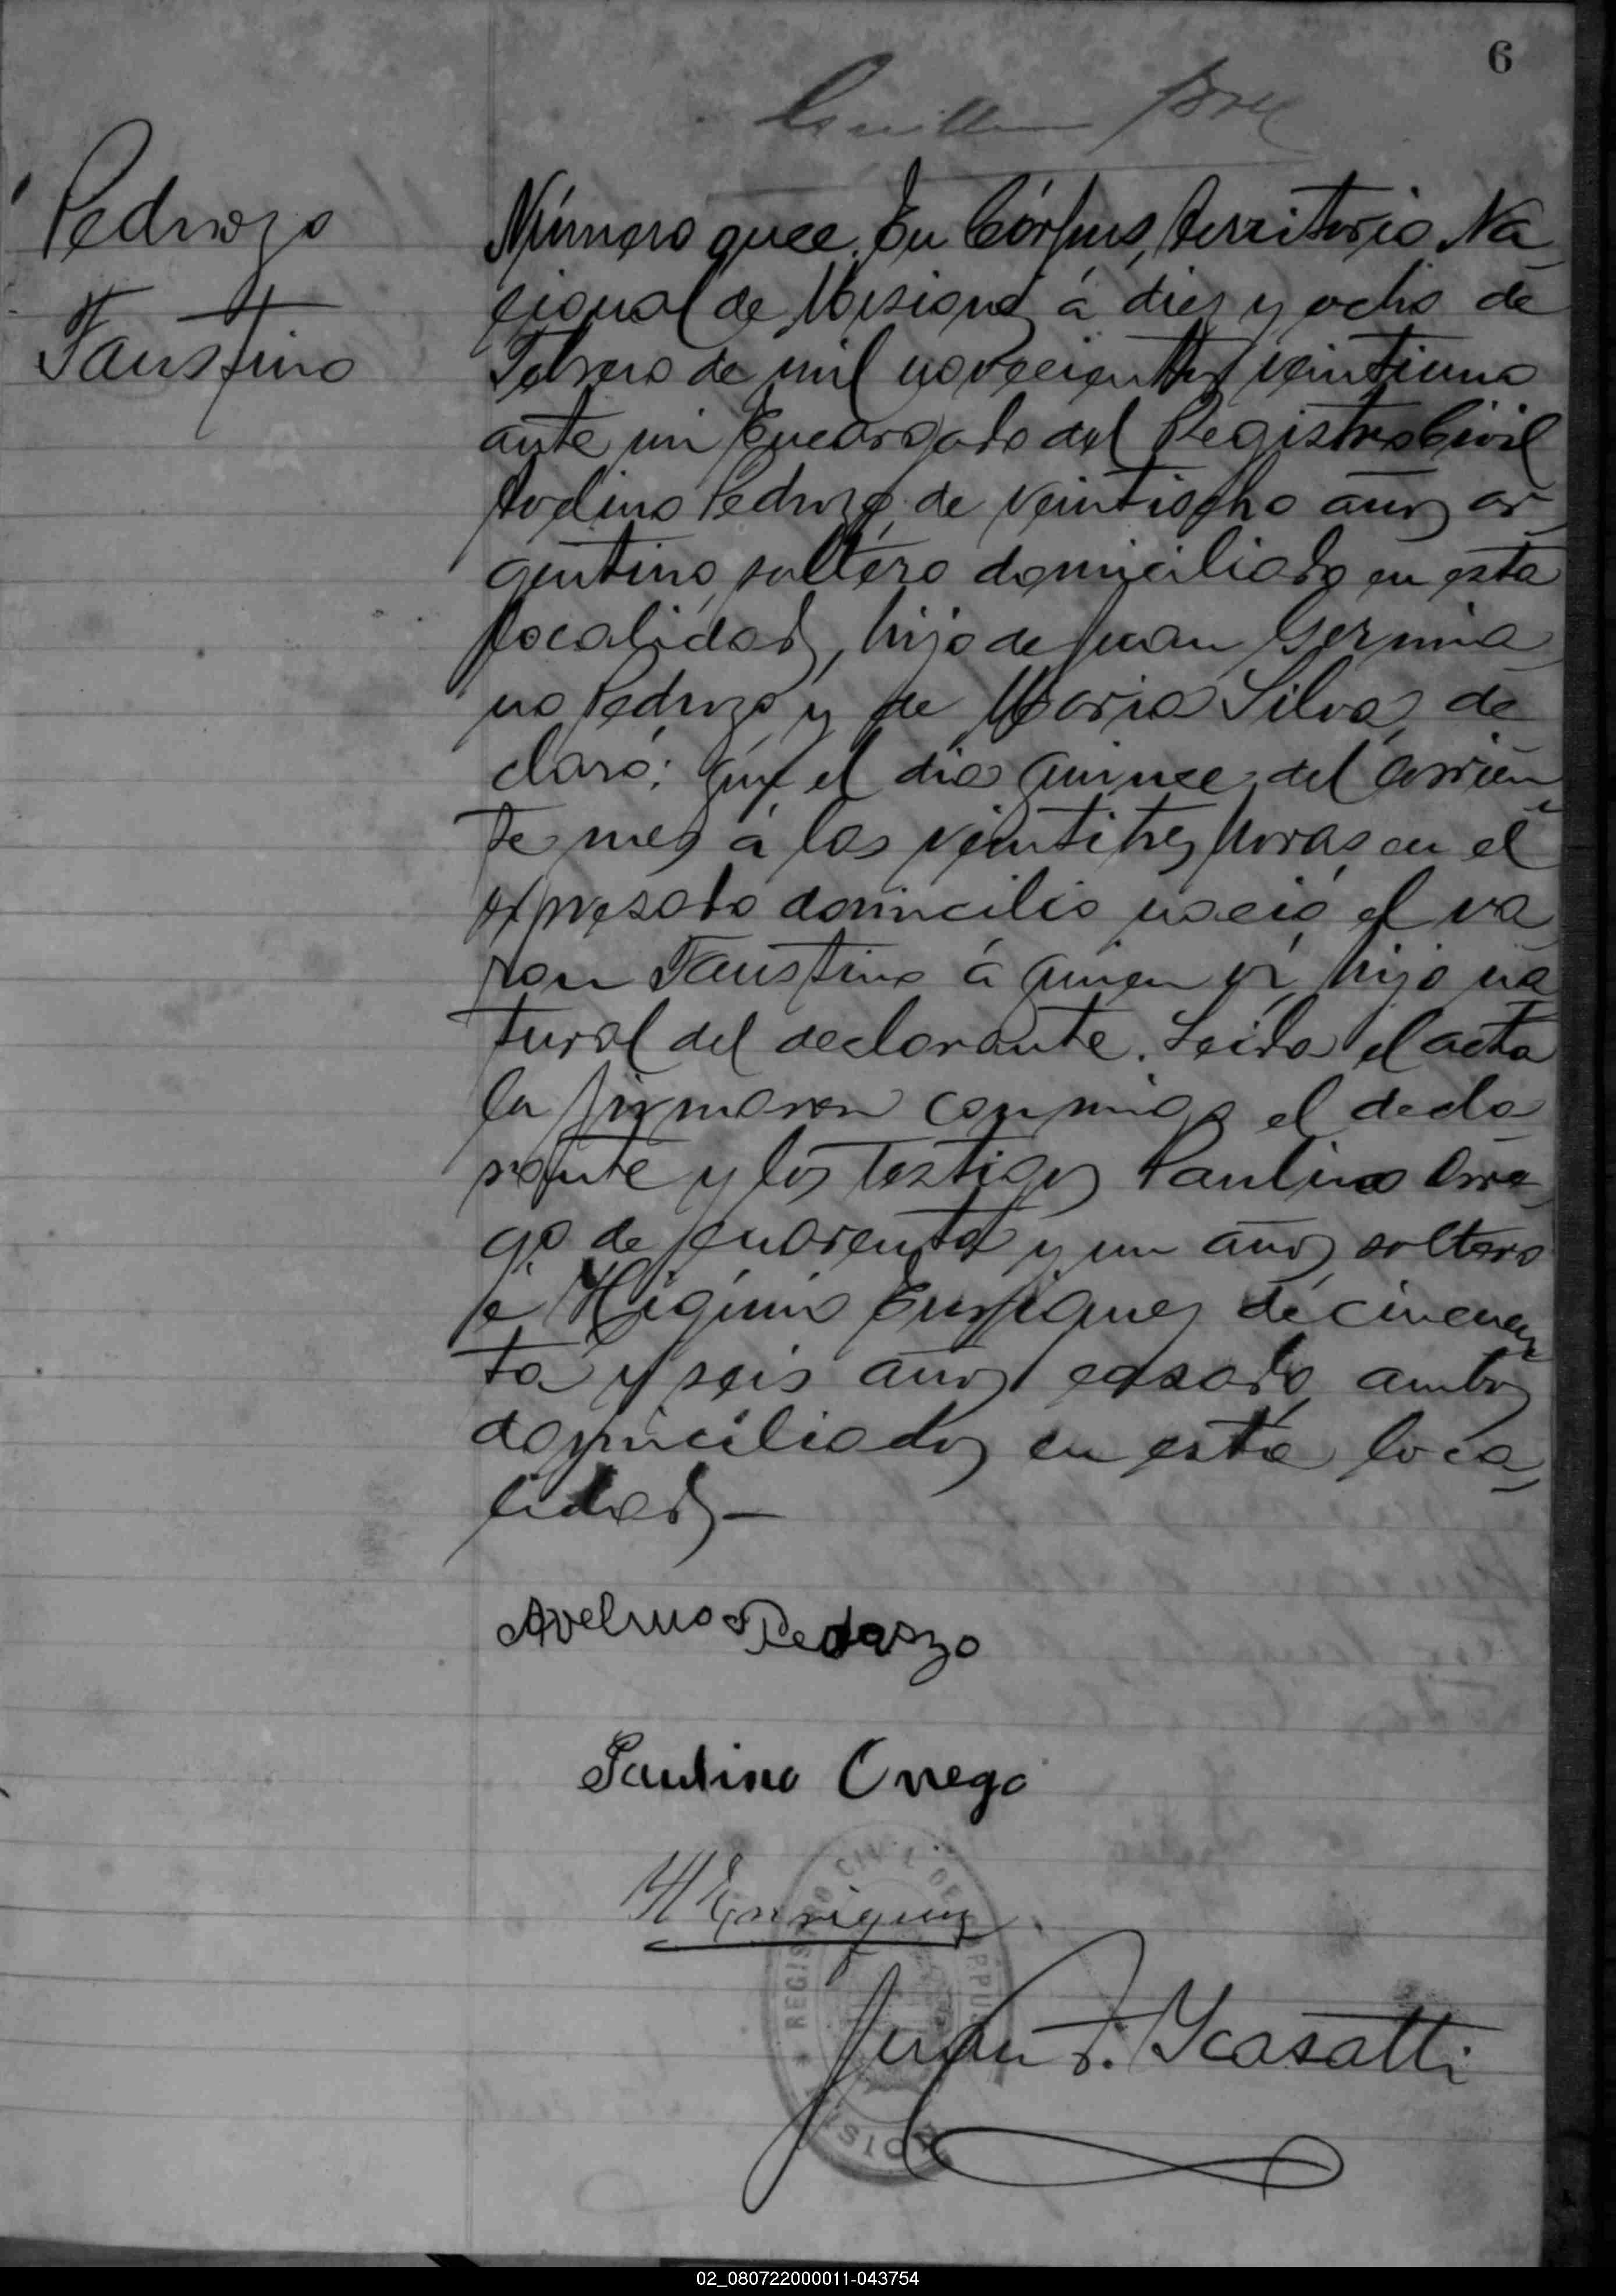 6
Pedrozo
Faustino
Número once. En Córpus, territorio Na
cional de Misiones á diez y ocho de
Febrero de mil novecientos veintiuno
ante mi Encargado del Registro Civil
Pedrozo, de veintiocho años ar
gentino, soltero domiciliado en esta
localidad, hijo de Juan Germia
no Pedrozo y de Maria Silva, de
claró: que el dia quince del corrien
te mes á las veintitres horas en el
expresado domicilio nació el va
ron Faustino á quien ví, hijo na
tural del declarante. Leida el acta
la firmaron conmigo el decla
rante y los testigos Paulino Orre
go de cuarenta y un años soltero
é Higinio Enriquez de cincuen
ta y seis años casado, ambos
domiciliados en esta loca
lidad—
Avelino Pedrozo
Paulino Orrego
H Enriquez
REGISTRO CIVIL DE
Juan Ycasatti
02_080722000011-043754